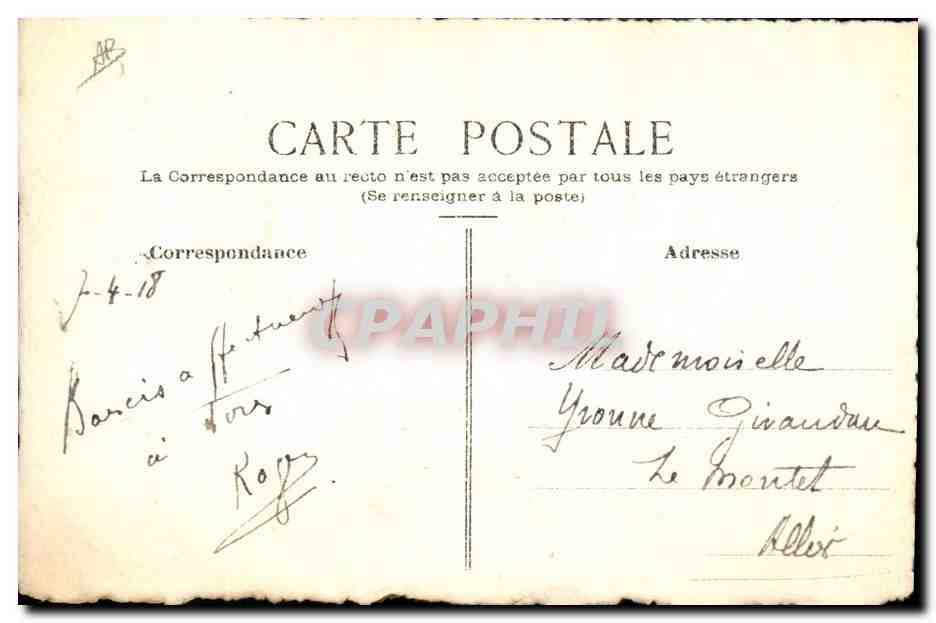 AB
CARTE POSTALE
La Correspondance au recto n'est pas acceptée par tous les pays étrangers
(Se renseigner à la poste)
Correspondance
7-4-18
Baisers affectueux
à tous
Roger
CPAPHIL
Adresse
Mademoiselle
Yvonne Giraudau
Le Montet
Allier